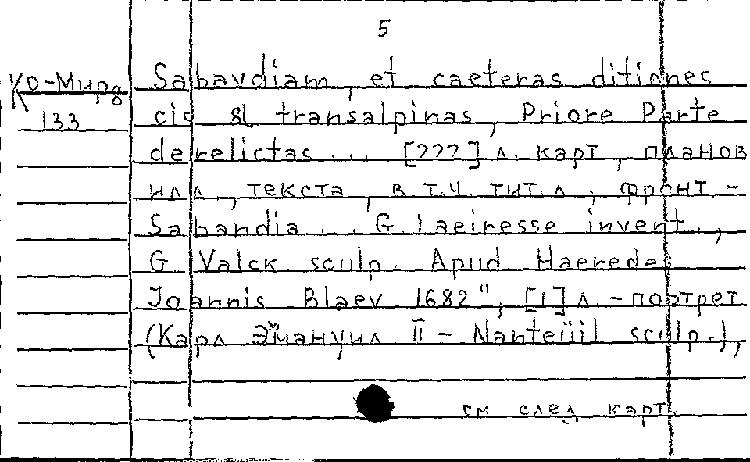 5
Ко-Мирд
133
Sabavdiam, et caeteras ditiones
cis & transalpinas, Priore Parte
derelictas... [???] л. карт, планов
илл, текста, в т.ч. тит.л, фронт.-
Sabandia... G. Laeiresse invent.,
G Valck sculp. Apud Haeredes
Joannis Blaev 1682", [1] л. - портрет
(Карл Эмануил II - Nanteüil sculp.),
см след карт.